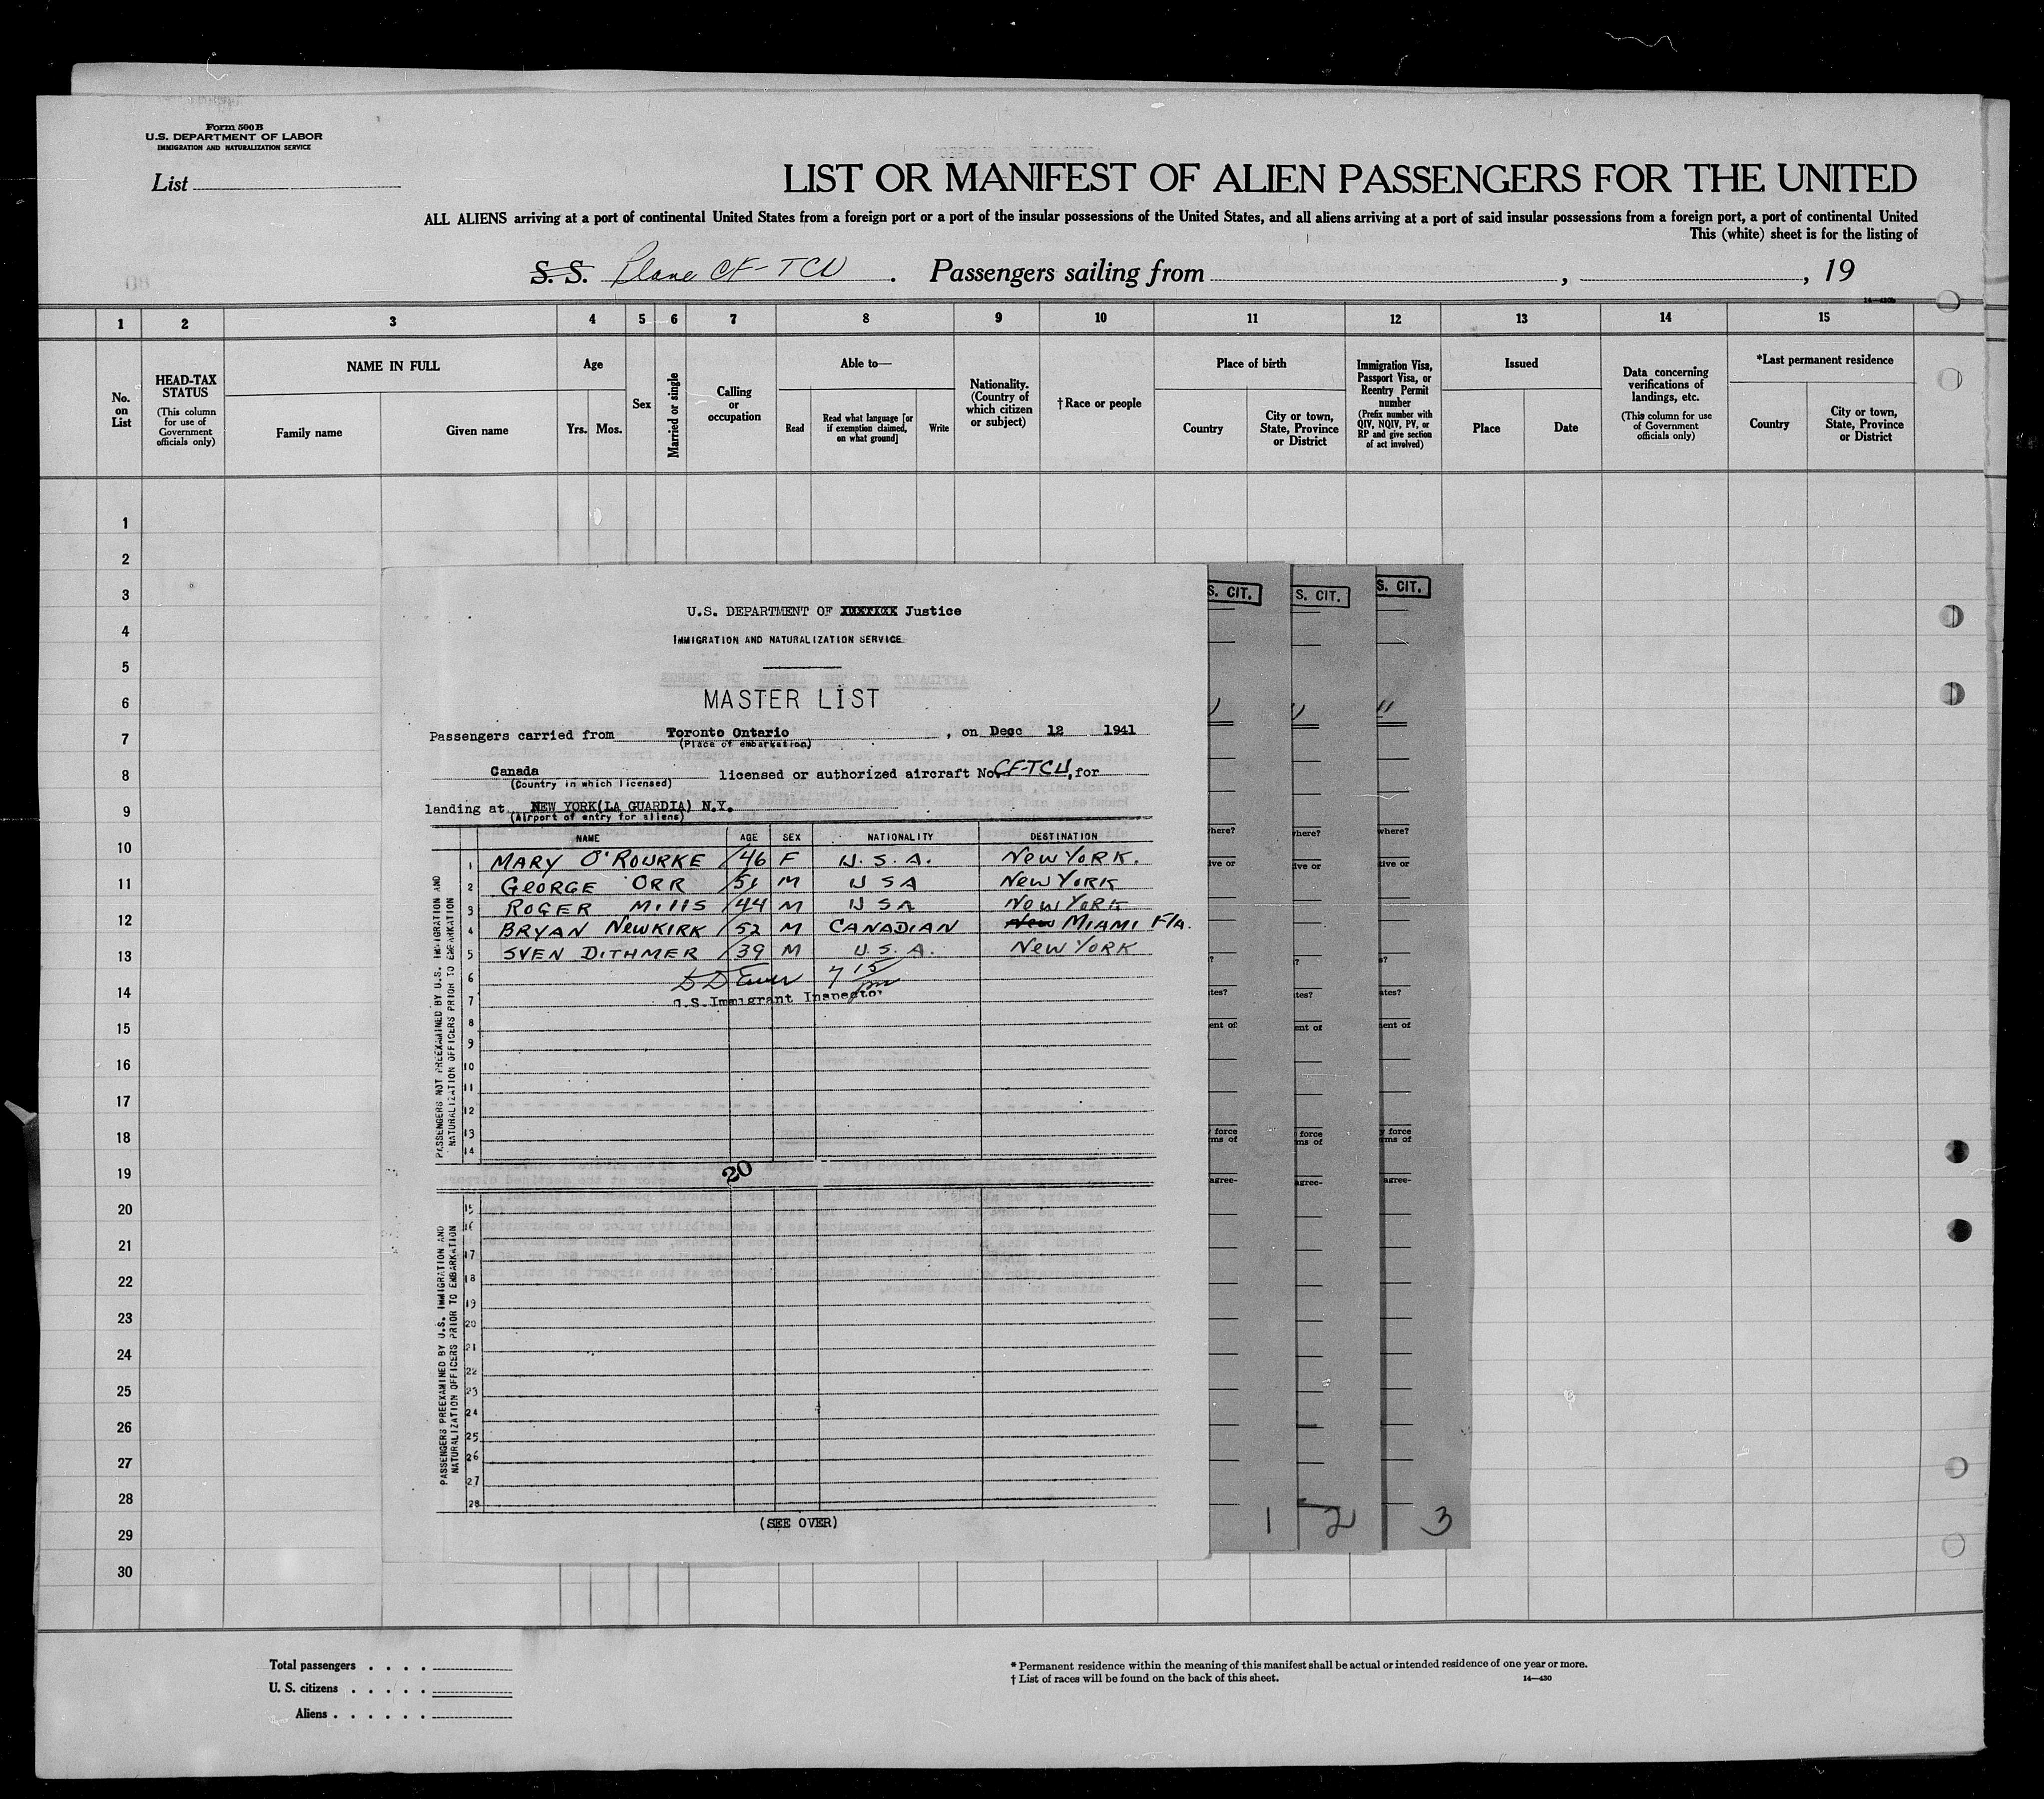 Form 500 B
U.S. DEPARTMENT OF LABOR
IMMIGRATION AND NATURALIZATION SERVICE
List
LIST OR MANIFEST OF ALIEN PASSENGERS FOR THE UNITED
ALL ALIENS arriving at a port of continental United States from a foreign port or a port of the insular possessions of the United States, and all aliens arriving at a port of said insular possessions from a foreign port, a port of continental United
This (white) sheet is for the listing of
S. S. Plane CF-TCU . Passengers sailing from , , 19
1 2 3 4 5 6 7 8 9 10 11 12 13 14 15
No. on List
HEAD-TAX STATUS
(This column for use of Government officials only)
NAME IN FULL
Family name Given name
Age
Yrs. Mos.
Sex
Married or single
Calling or occupation
Able to—
Read
Read what language [or if exemption claimed, on what ground]
Write
Nationality. (Country of which citizen or subject)
†Race or people
Place of birth
Country
City or town, State, Province or District
Immigration Visa, Passport Visa, or Reentry Permit number
(Prefix number with QIV, NQIV, PV, or RP and give section of act involved)
Issued
Place Date
Data concerning verifications of landings, etc.
(This column for use of Government officials only)
*Last permanent residence
Country
City or town, State, Province or District
1
2
3
4
5
6
7
8
9
10
11
12
13
14
15
16
17
18
19
20
21
22
23
24
25
26
27
28
29
30
U.S. DEPARTMENT OF Justice
IMMIGRATION AND NATURALIZATION SERVICE
MASTER LIST
Passengers carried from Toronto Ontario , on Dec 12 1941
(Place of embarkation)
Canada licensed or authorized aircraft No. CF-TCU, for
(Country in which licensed)
landing at NEW YORK(LA GUARDIA) N.Y.
(Airport of entry for aliens)
NAME AGE SEX NATIONALITY DESTINATION
1 MARY O'ROURKE 46 F U.S.A. NEW YORK.
2 GEORGE ORR 51 M USA NEW YORK
3 ROGER MILLS 44 M USA NEW YORK
4 BRYAN NEWKIRK 52 M CANADIAN New MIAMI FLA.
5 SVEN DITHMER 39 M U.S.A. NEW YORK
6 7 15 pm
7 U.S. Immigrant Inspector
8
9
10
11
12
13
14
PASSENGERS NOT PREEXAMINED BY U.S. IMMIGRATION AND
NATURALIZATION OFFICERS PRIOR TO EMBARKATION
20
15
16
17
18
19
20
21
22
23
24
25
26
27
28
PASSENGERS PREEXAMINED BY U.S. IMMIGRATION AND
NATURALIZATION OFFICERS PRIOR TO EMBARKATION
(SEE OVER)
S. CIT. S. CIT. S. CIT.
here? here? where?
ive or ive or ive or
? ? s?
tes? tes? ates?
ent of ent of ment of
force force y force
ms of ms of rms of
agree- agree- agree-
1 2 3
Total passengers . . . .
U. S. citizens . . . . .
Aliens . . . . . .
* Permanent residence within the meaning of this manifest shall be actual or intended residence of one year or more.
† List of races will be found on the back of this sheet. 14—430